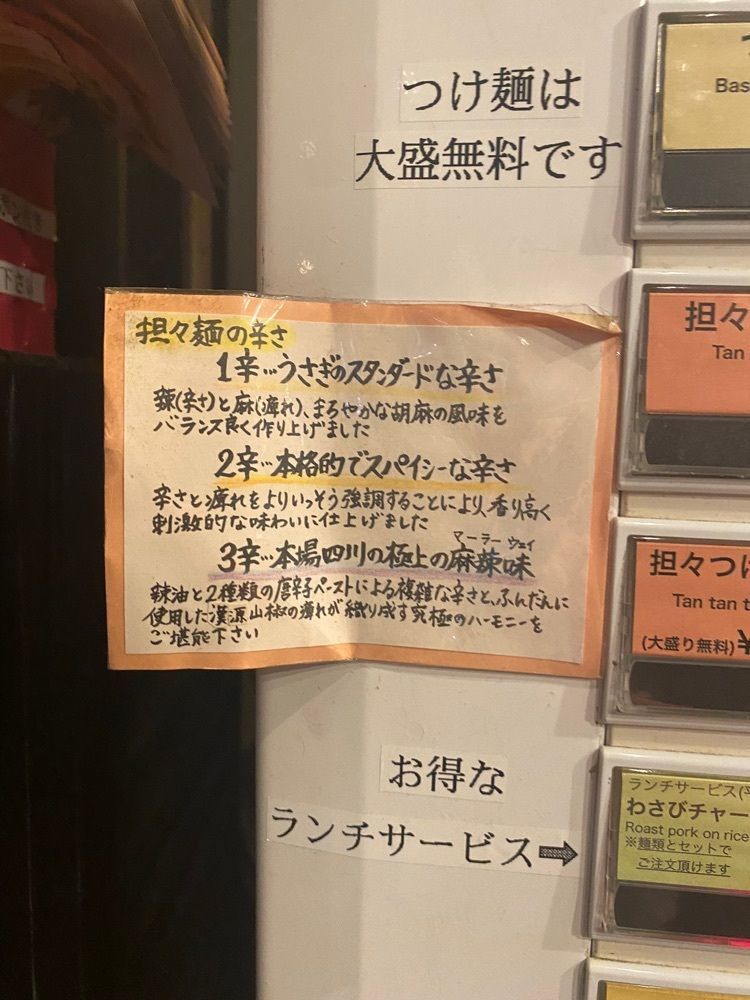 つけ麺は
大盛無料です
担々麺の辛さ
1辛…うさぎのスタンダードな辛さ
辣(辛さ)と麻(痺れ)、まろやかな胡麻の風味を
バランス良く作り上げました
2辛…本格的でスパイシーな辛さ
辛さと痺れをよりいっそう強調することにより、香り高く
刺激的な味わいに仕上げました
マーラー ウェイ
3辛…本場四川の極上の麻辣味
辣油と2種類の唐辛子ペーストによる複雑な辛さと、ふんだんに
使用した漢源山椒の痺れが織り成す究極のハーモニーを
ご堪能下さい
お得な
ランチサービス➡
Bas
担々
Tan
担々つけ
Tan tan t
(大盛り無料)¥
ランチサービス(平
わさびチャー
Roast pork on rice
※麺類とセットで
ご注文頂けます
下さい